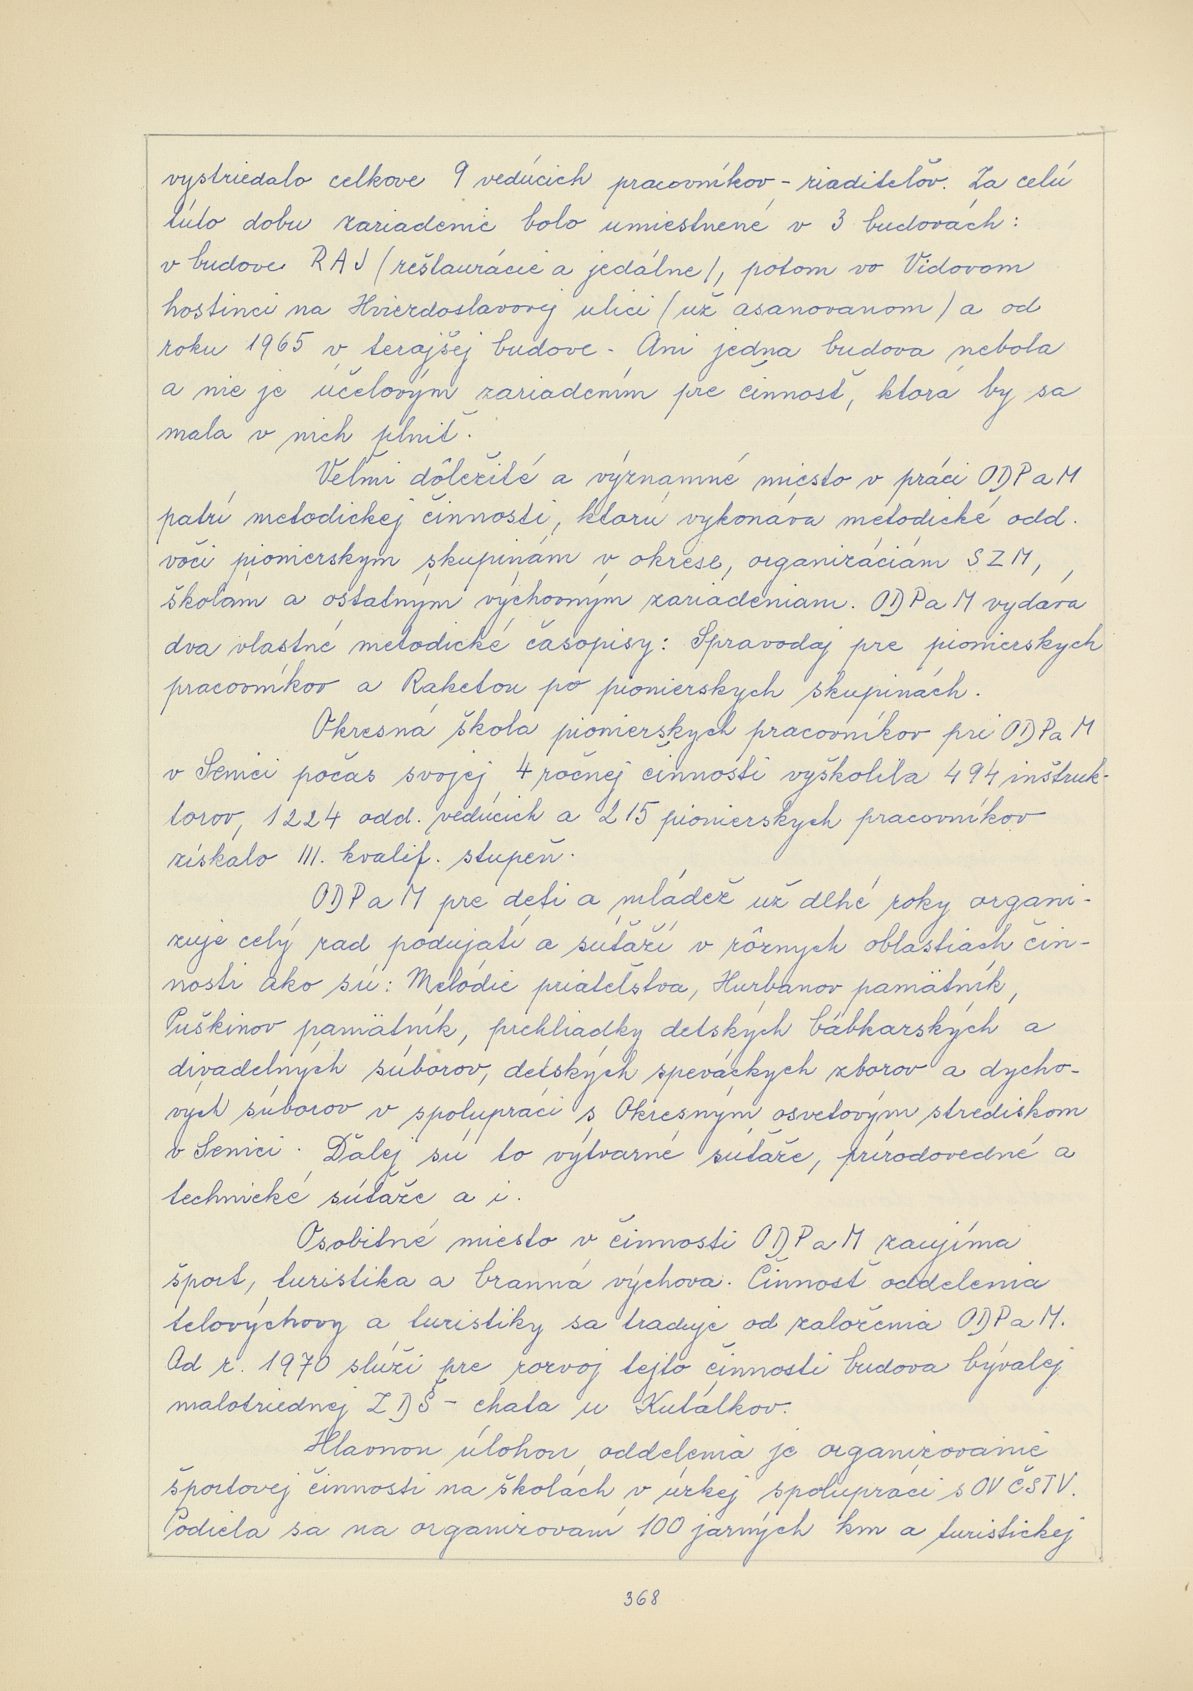 vystriedalo celkove 9 vedúcich pracovníkov - riaditeľov. Za celú
túto dobu zariadenie bolo umiestnené v 3 budovách:
v budove RAJ (reštaurácie a jedálne), potom vo Vidovom
hostinci na Hviezdoslavovej ulici (už asanovanom) a od
roku 1965 v terajšej budove. Ani jedna budova nebola
a nie je účelovým zariadením pre činnosť, ktorá by sa
mala v nich plniť.
Veľmi dôležité a významné miesto v práci ODPaM
patrí metodickej činnosti, ktorú vykonáva metodické odd.
voči pionierskym skupinám v okrese, organizáciám SZM,
školám a ostatným výchovným zariadeniam. ODPaM vydáva
dva vlastné metodické časopisy: Spravodaj pre pionierskych
pracovníkov a Raketou po pionierskych skupinách.
Okresná škola pionierskych pracovníkov pri ODPaM
v Senici počas svojej 4 ročnej činnosti vyškolila 494 inštruk-
torov, 1224 odd. vedúcich a 215 pionierskych pracovníkov
získalo III. kvalif. stupeň.
ODPaM pre deti a mládež už dlhé roky organi-
zuje celý rad podujatí a súťaží v rôznych oblastiach čin-
nosti ako sú: Melódie priateľstva, Hurbanov pamätník,
Puškinov pamätník, prehliadky detských bábkarských a
divadelných súborov, detských speváckych zborov a dycho-
vých súborov v spolupráci s Okresným osvetovým strediskom
v Senici. Ďalej sú to výtvarné súťaže, prírodovedné a
technické súťaže a i.
Osobitné miesto v činnosti ODPaM zaujíma
šport, turistika a branná výchova. Činnosť oddelenia
telovýchovy a turistiky sa traduje od založenia ODPaM.
Od r. 1970 slúži pre rozvoj tejto činnosti budova bývalej
malotriednej ZDŠ - chata u Kutálkov.
Hlavnou úlohou oddelenia je organizovanie
športovej činnosti na školách v úzkej spolupráci s OV ČSTV.
Podieľa sa na organizovaní 100 jarných km a turistickej
368